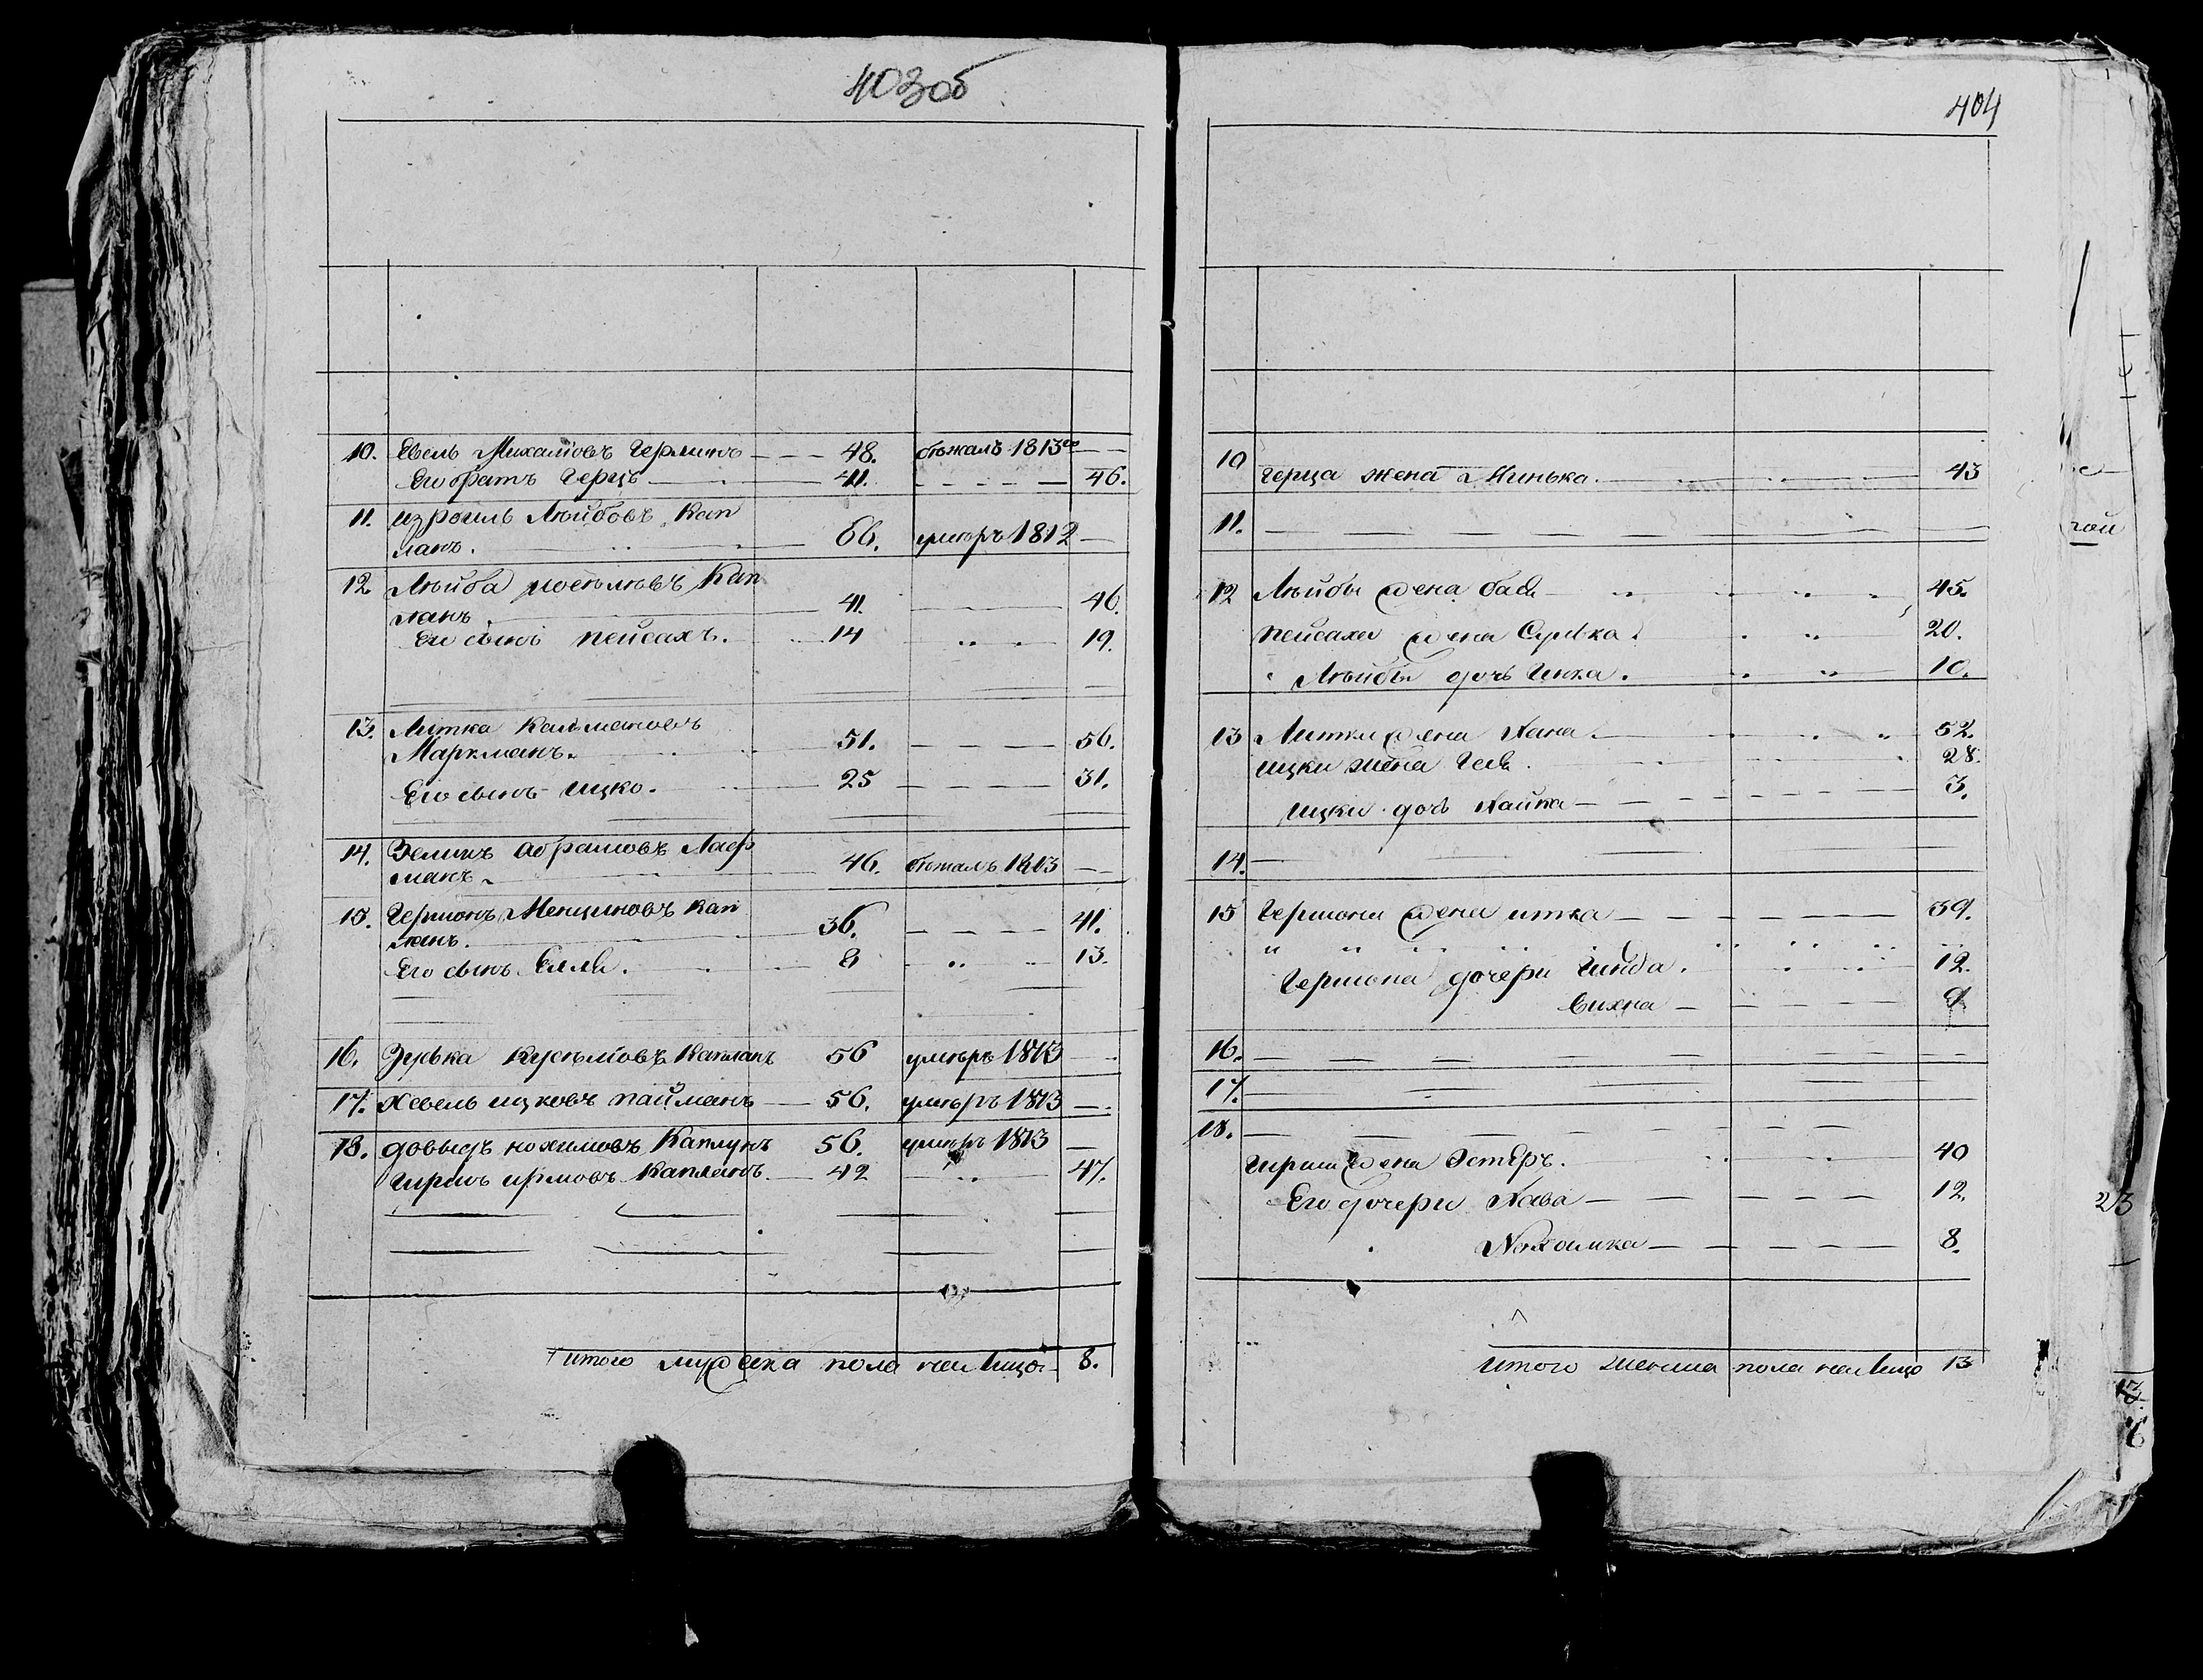 403об
10. Евель Михалiовъ Герлинъ — 48. бѣжалъ 1813го —
Его братъ Герцъ — 41. — 46.
11. Изроиль Лѣйбовъ Кап
ланъ. — 66. умѣръ 1812 —
12 Лѣйба Иосѣлiовъ Кап
ланъ — 41. — 46.
Его сынъ пейсахъ. — 14 — 19.
13. Литка Кальмановъ
Маркманъ. 51. — 56.
Его сынъ ицко. 25 — 31.
14. Зеликъ абрамовъ Лаф
манъ. 46. бѣжалъ 1813 —
15. Гершонъ Кап
ланъ. 36. — 41.
Его сынъ Елля. 8 — 13.
16. Зуська Капланъ 56 умѣръ 1813 —
17. Хевель ицковъ пайманъ — 56. умѣръ 1813 —
18. довыдъ нохимовъ Каплунъ 56. умѣръ 1813 —
Гиршъ Капланъ. — 42 — 47.
итого мужеска пола на лицо — 8.
404
10 Герца жена Минька. — 43
11. —
12 Лѣйбы жена бася — 45.
пейсаха жена Сурька. 20.
Лѣйбы дочь Гинка. 10.
13 Литки жена Хана. — 52.
ицки жена Геся. 28.
ицки дочь Хайка — 3.
14. —
15 Гершона жена итка — 39.
Гершона дочери Гинда. 12.
Вихна — 9.
16. —
17. —
18. —
Гирша жена Эстеръ. 40
Его дочери Хава — 12.
Нохамка — 8.
итого женска пола на лицо 13